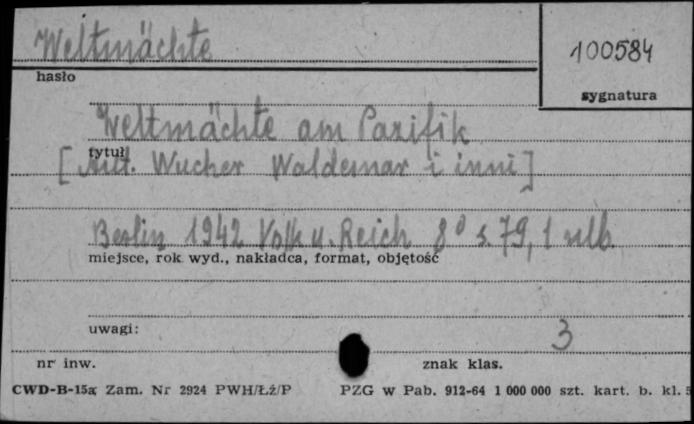 Weltmächte
100584
hasło
sygnatura
Weltmächte am Pazifik
tytuł
[Aut. Wucher Waldemar i inni]
Berlin 1942 Volk u. Reich 8° s. 79, 1 nlb.
miejsce, rok wyd., nakładca, format, objętość
uwagi:
3
nr inw.
znak klas.
CWD-B-15a Zam. Nr 2924 PWH/Łż/P PZG w Pab. 912-64 1 000 000 szt. kart. b. kl. 5